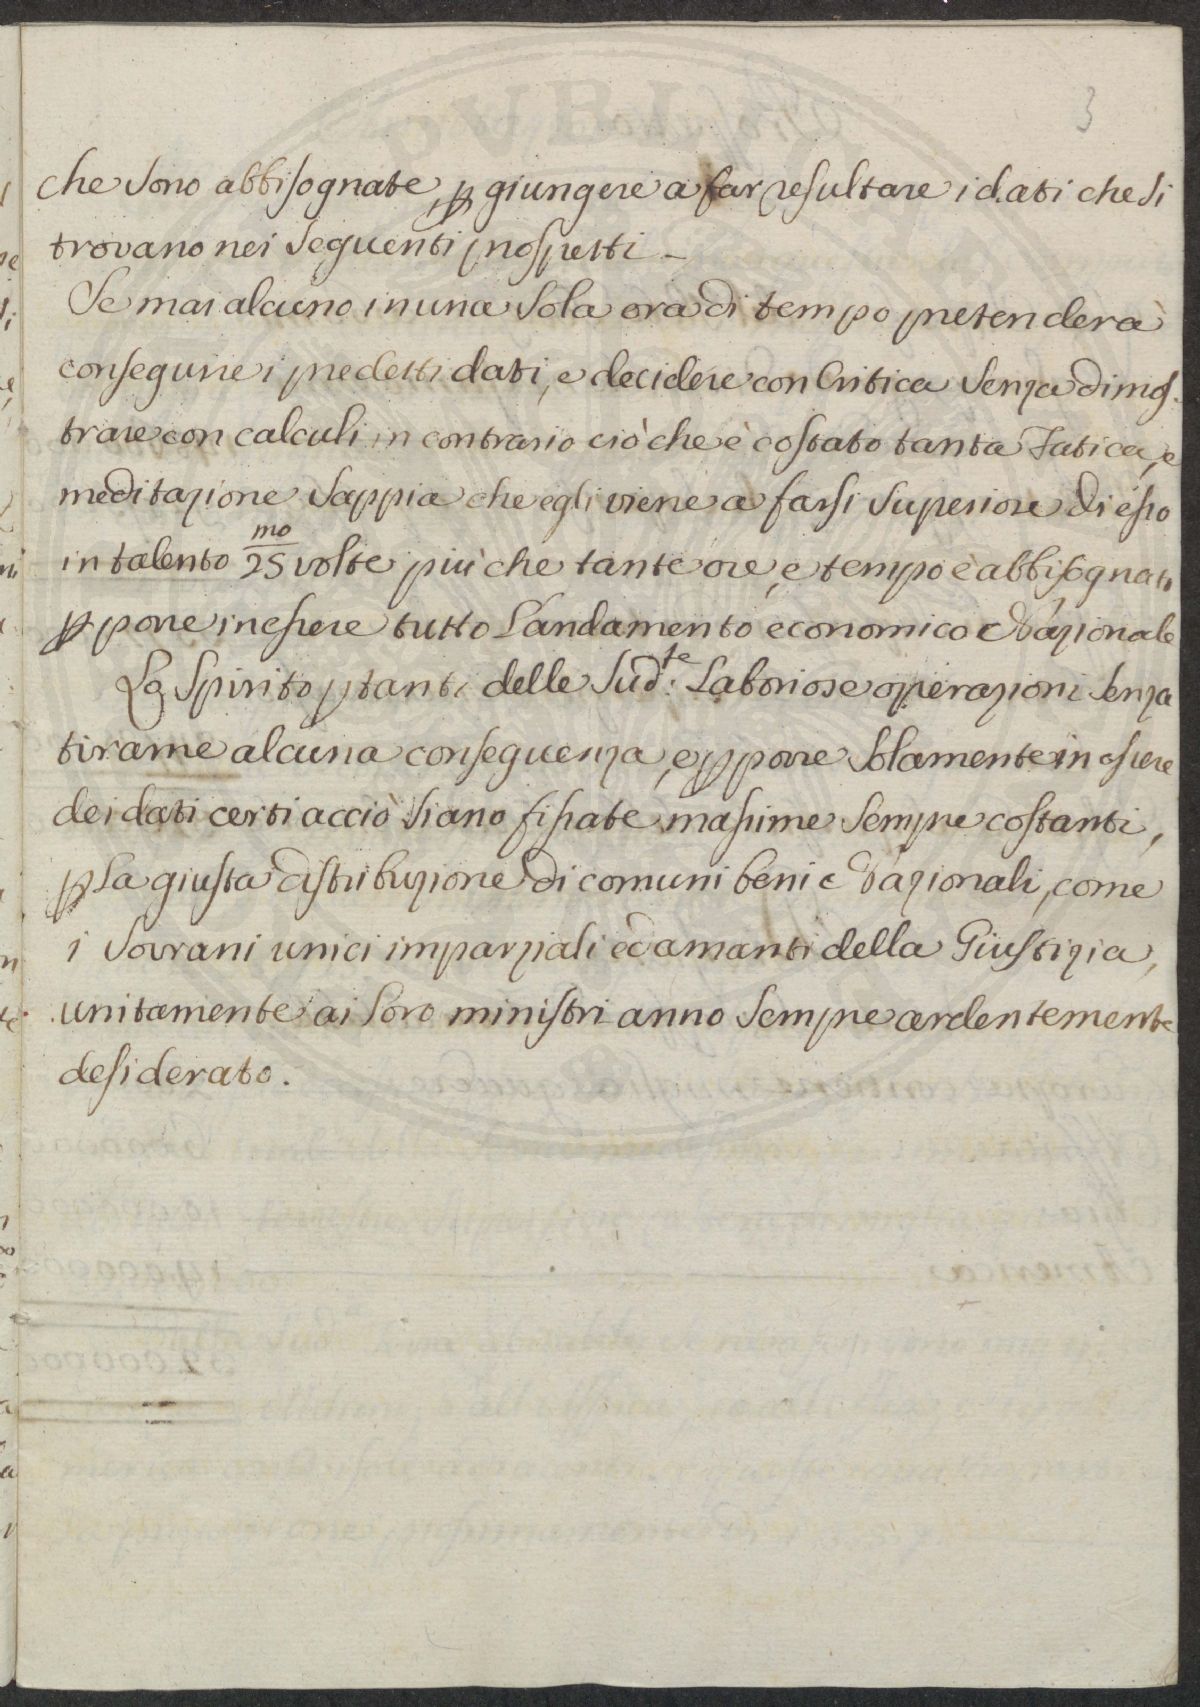 3
che sono abbisognate p giungere a far resultare i dati che si
trovano nei seguenti prospetti -
Se mai alcuno in una sola ora di tempo pretenderà
conseguire i predetti dati, e decidere con Critica senza dimos-
trare con calculi in contrario ciò che è costato tanta Fatica, e
meditazione sappia che egli viene a farsi superiore di esso
in talento 25 mo volte più che tante ore, e tempo è abbisognato
p porre in essere tutto L'andamento economico Nazionale
Lo Spirito ptanti delle Sud.te Laboriose operazioni senza
tirarne alcuna conseguenza, e p porre solamente in essere
dei dati certi acciò siano fissate massime sempre costanti,
p La giusta distribuzione di comuni beni e Nazionali, come
i Sovrani unici imparziali ed amanti della Giustizia,
unitamente ai Loro ministri anno sempre ardentemente
desiderato.